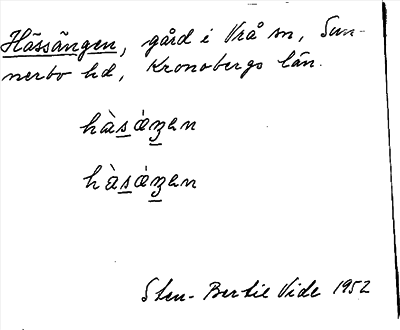 Hässängen, gård i Vrå sn, Sun-
nerbo hd, Kronobergs län.
hàsáŋen
hàsáŋen
Sten-Bertil Vide 1952